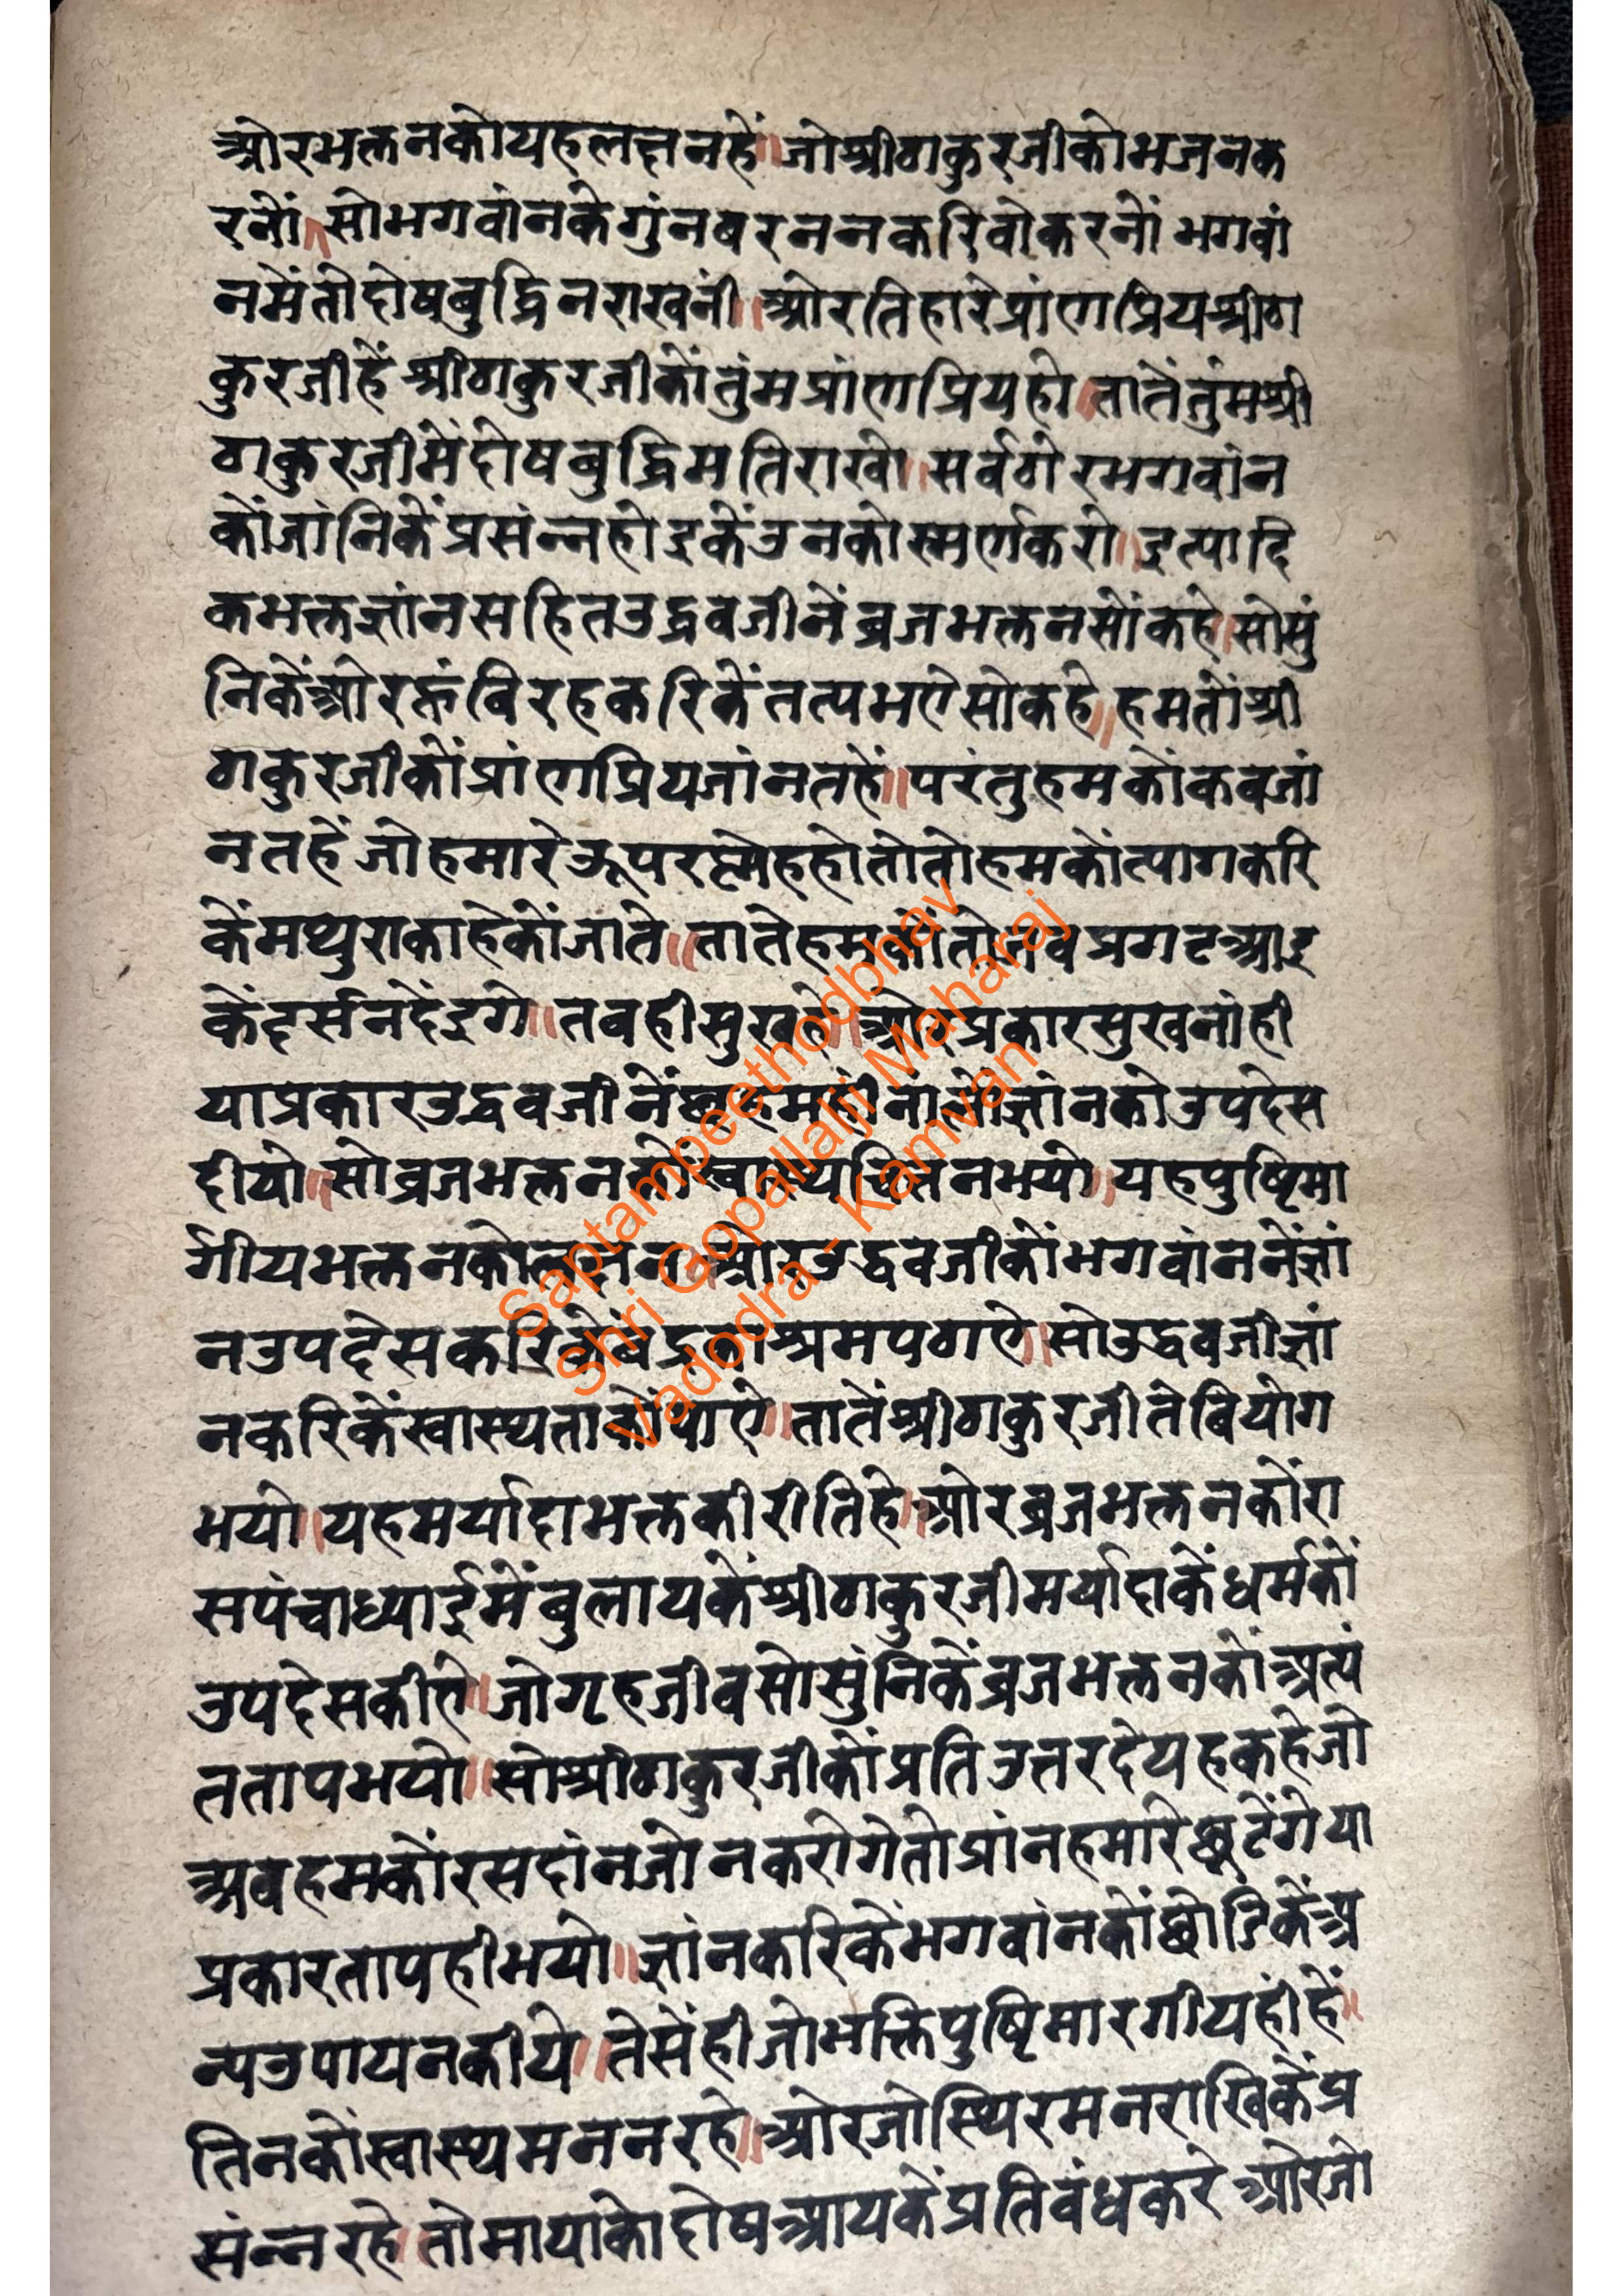 ओरभक्तनकोयहलछनहें॥जोश्रीठाकुरजीकोभजनक
रनों॥सोभगवांनकेगुंनबरननकरिवोकरनों भगवां
नमेंतोदोषबुद्धिनराखनी॥ओरतिहारेप्रांणप्रियश्रीठा
कुरजीहें श्रीठाकुरजीकोंतुंमप्रांणप्रियहो॥तातेंतुंमश्री
ठाकुरजीमेंदोषबुद्धिमतिराखो॥सर्वठोरभगवांन
कोंजांनिकेंप्रसंन्नहोइकेंउनकोस्मर्णकरो॥इत्यादि
कभक्तज्ञांनसहितउद्धवजीनेंब्रजभक्तनसोंकहे॥सोसुं
निकेंओरक्तंविरहकरिकेंतत्पभऐसोकहे॥हमतोंश्री
ठाकुरजीकोंप्रांणप्रियजांनतहें॥परंतुहमकोंकबजां
नतहेंजोहमारेऊपरष्नेहहोतोतोहमकोंत्यागकरि
केंमथुराकाहेकोंजाते॥तातेहमकोंतोतबप्रगटआइ
केंदर्सनदेंइगे॥तबहीसुखहे॥ओरप्रकारसुखनांही
याप्रकारउद्धवजीनेंछहमहीनांलोंज्ञांनकोउपदेस
दीयो॥सोब्रजभक्तनकोंस्वास्थ्यचित्तनभयो॥यहपुष्टिमा
र्गीयभक्तनकोलछन॥ओरउद्धवजीकोंभगवांननेंज्ञां
नउपदेसकरिकेंबद्रकाश्रमपठाऐ॥सोउद्धवजीज्ञां
नकरिकेंस्वास्थ्यताकोंपाऐ॥तातेंश्रीठाकुरजीतेबियोग
भयो॥यहमर्यादाभक्तकीरीतिहे॥ओरब्रजभक्तनकोंरा
सपंचाध्याईमेंबुलायकेंश्रीठाकुरजीमर्यादाकेंधर्मकों
उपदेसकीऐ॥जोगृहजीवसोसुंनिकेंब्रजभक्तनकोंअत्यं
ततापभयो॥सोश्रीठाकुरजीकोंप्रतिउत्तरदेयहकहेजो
अबहमकोंरसदांनजोनकरोगेतोप्रांनहमारेछुटेंगेया
प्रकारतापहीभयो॥ज्ञांनकरिकेंभगवांनकोंछोडिकेंअ
न्यउपायनकीये॥तेसेंहीजोभक्तिपुष्टिमारगीयहीहें॥
तिनकोंस्वास्थ्यमनन रहे॥ओरजोस्थिरमनराखिकेंप्र
संन्नरहे॥तोमायाकोदोषआयकेंप्रतिबंधकरे ओरजो
Saptampeethodbhav
Shri Gopallalji Maharaj
Vadodra - Kamvan